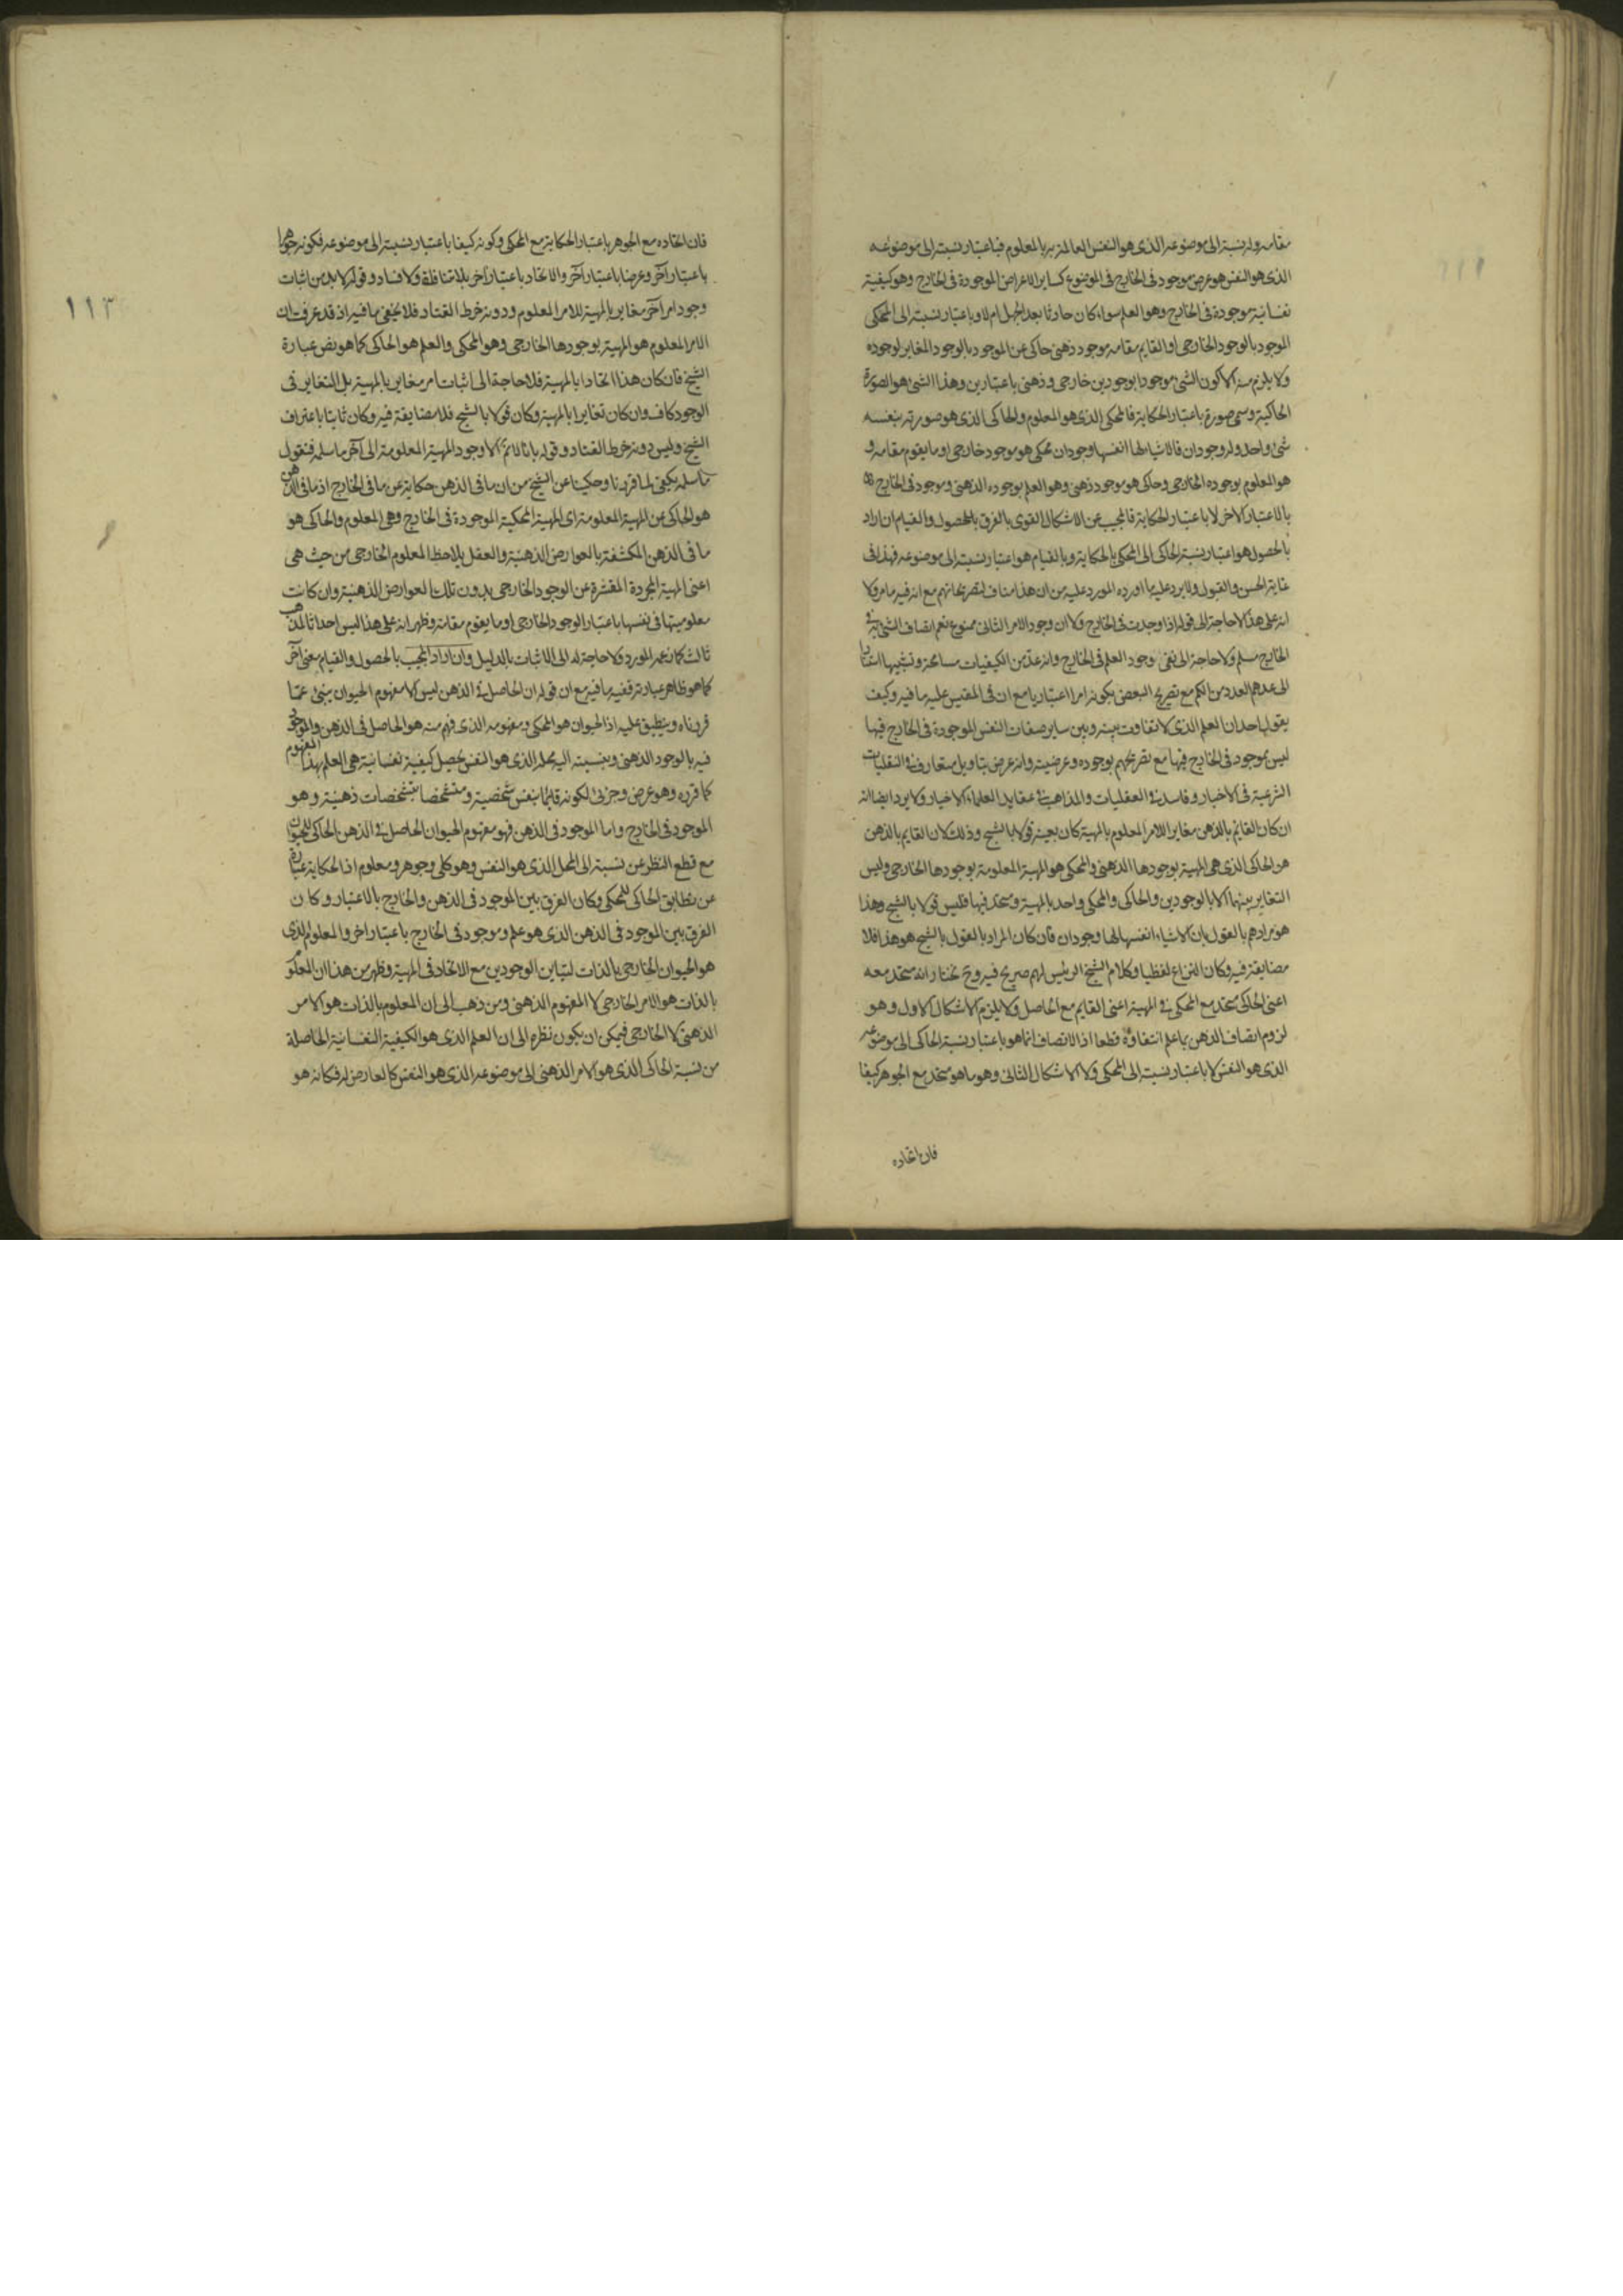 مقامه وله نسبة الى موضوعه الذى هو النفس العالمة به بالمعلوم فباعتبار نسبته الى موضوعه
الذى هو النفس هو عرض موجود فى الخارج فى الموضوع كساير الاعراض الموجودة فى الخارج وهو كيفية
نفسانية موجودة فى الخارج وهو العلم سواء كان حادثا بعد الجهل ام لا وباعتبار نسبته الى المحكى
الموجود بالوجود الخارجى او القايم مقامه موجود ذهنى حاكى عن الموجود بالوجود المغاير لوجوده
ولا يلزم منه الا كون الشئ موجودا بوجودين خارجى وذهنى باعتبارين وهذا الشئ هو الصورة
الحاكية وسمى صورة باعتبار الحكاية فالمحكى الذى هو المعلوم والحاكى الذى هو صورته بنفسه
شئ واحد وله وجودان فالاشيا لها انفسها وجودان محكى هو موجود خارجى او ما يقوم مقامه و
هو المعلوم بوجوده الخارجى وحاكى هو موجود ذهنى وهو العلم بوجوده الذهنى وموجود فى الخارج
بالاعتبار الاخر لا باعتبار الحكاية فالمجيب عن الاشكال القوى بالفرق بالحصول والقيام ان اراد
بالحصول هو اعتبار نسبة الحاكى الى المحكى بالحكاية وبالقيام هو اعتبار نسبته الى موضوعه فهذا فى
غاية الحسن والقبول ولا يرد عليه ما اورده المورد عليه من ان هذا مناف لتصريحاتهم مع انه فيه ما مر ولا
انه على هذا لا حاجة الى قوله اذا وجدت فى الخارج ولا ان وجود الامر الثانى ممنوع نعم اتصاف الشئ به فى
الخارج مسلم ولا حاجة الى نفى وجود العلم فى الخارج وانه عد من الكيفيات مسامحة وتشبيها استنادا
الى عدهم العدد من الكم مع تصريح البعض بكونه امرا اعتباريا مع ان فى المقيس عليه ما فيه وكيف
يقول احد ان العلم الذى لا تفاوت بينه وبين ساير صفات النفس الموجودة فى الخارج فيها
ليس بموجود فى الخارج فيها مع تصريحهم بوجوده وعرضيته وانه عرض بتاويل متعارف فى النقليات
الشرعية فى الاخبار وفاسد فى العقليات والمذاهب فى عقايد العلماء الاخيار ولا يرد ايضا انه
ان كان القايم بالذهن مغاير اللامر المعلوم بالمهية كان بعينه قولا بالشبح وذلك لان القايم بالذهن
هو الحاكى الذى هى المهية بوجودها الذهنى والمحكى هو المهية المعلومة بوجودها الخارجى وليس
التغاير بينهما الا بالوجودين والحاكى والمحكى واحد بالمهية ومتحد فيها فليس قولا بالشبح وهذا
هو مرادهم بالقول بان الاشياء انفسها لها وجودان فان كان المراد بالقول بالشبح هو هذا فلا
مضايقة فيه وكان النزاع لفظيا وكلام الشيخ الرئيس لهم صريح فيه وح نختار انه متحد معه
اعنى الحاكى متحد مع المحكى فى المهية اعنى القايم مع الحاصل ولا يلزم الاشكال الاول وهو
لزوم اتصاف الذهن بما علم انتفاؤه قطعا اذ الاتصاف انما هو باعتبار نسبة الحاكى الى موضوعه
الذى هو النفس لا باعتبار نسبته الى المحكى ولا الاشكال الثانى وهو ما هو متحد مع الجوهر كيفا
فان اتحاده
١١٣
فان اتحاده مع الجوهر باعتبار الحكاية مع المحكى وكونه كيفا باعتبار نسبته الى موضوعه فكونه جوهرا
باعتبار آخر وعرضا باعتبار آخر والاتحاد باعتبار آخر بلا مناقضة ولا فساد وقوله لا بد من اثبات
وجود امر آخر مغاير بالمهية للامر المعلوم ودونه خرط القتاد فلا يخفى ما فيه اذ قد عرفت ان
الامر المعلوم هو المهية بوجودها الخارجى وهو المحكى والعلم هو الحاكى كما هو نص عبارة
الشيخ فان كان هذا اتحادا بالمهية فلا حاجة الى اثبات امر مغاير بالمهية بل التغاير فى
الوجود كاف وان كان تغايرا بالمهية وكان قولا بالشبح فلا مضايقة فيه وكان ثابتا باعتراف
الشيخ وليس دونه خرط القتاد وقوله بانا لا نم الا وجود المهية المعلومة الى آخر ما سلمه فنقول
ما سلمه يكفى لما قررنا وحكينا عن الشيخ من ان ما فى الذهن حكاية عن ما فى الخارج اذ ما فى الذهن
هو الحاكى عن المهية المعلومة اى المهية المحكية الموجودة فى الخارج وهى المعلوم والحاكى هو
ما فى الذهن المكشفة بالعوارض الذهنية والعقل يلاحظ المعلوم الخارجى من حيث هى
اعنى المهية المجردة المقشرة عن الوجود الخارجى بدون تلك العوارض الذهنية وان كانت
معلوميتها فى نفسها باعتبار الوجود الخارجى او ما يقوم مقامه وظهر انه على هذا ليس احداثا لمذهب
ثالث كما زعمه المورد ولا حاجة له الى الاثبات بالدليل وان اراد المجيب بالحصول والقيام معنى آخر
كما هو ظاهر عبارته ففيه ما فيه مع ان قوله ان الحاصل فى الذهن ليس الا مفهوم الحيوان ينبئ عما
قررناه وينطبق عليه اذ الحيوان هو المحكى ومفهومه الذى فهم منه هو الحاصل فى الذهن والموجود
فيه بالوجود الذهنى وبنسبته اليه محله الذى هو النفس يحصل كيفية نفسانية هى العلم بهذا المفهوم
كما قرره وهو عرض وجزئى لكونه قايما بنفس شخصية ومتشخصا بتشخصات ذهنية وهو
الموجود فى الخارج واما الموجود فى الذهن فهو مفهوم الحيوان الحاصل فى الذهن الحاكى للحيوان
مع قطع النظر عن نسبته الى المحل الذى هو النفس وهو كلى وجوهر ومعلوم اذ الحكاية عبارة
عن تطابق الحاكى للمحكى وكان الفرق بين الموجود فى الذهن والخارج بالاعتبار وكان
الفرق بين الموجود فى الذهن الذى هو علم وموجود فى الخارج باعتبار اخر والمعلوم الذى
هو الحيوان الخارجى بالذات لتباين الوجودين مع الاتحاد فى المهية وظهر من هذا ان المعلوم
بالذات هو الامر الخارجى لا المفهوم الذهنى ومن ذهب الى ان المعلوم بالذات هو الامر
الذهنى لا الخارجى فيمكن ان يكون نظره الى ان العلم الذى هو الكيفية النفسانية الحاصلة
من نسبة الحاكى الذى هو الامر الذهنى الى موضوعه الذى هو النفس كالعارض له فكانه هو